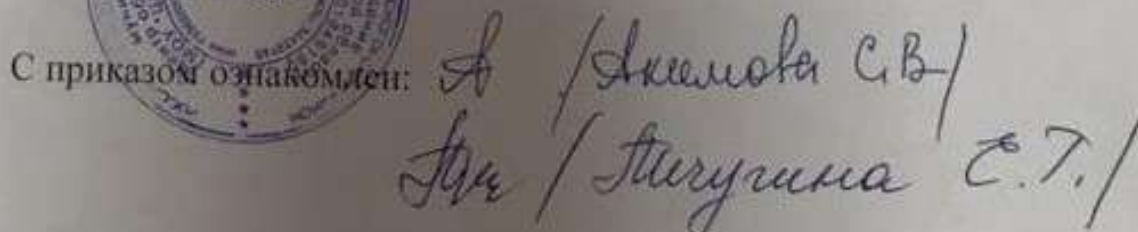 С приказом ознакомлен: А /Акимова С.В/
Пич / Пичугина Е.Т./